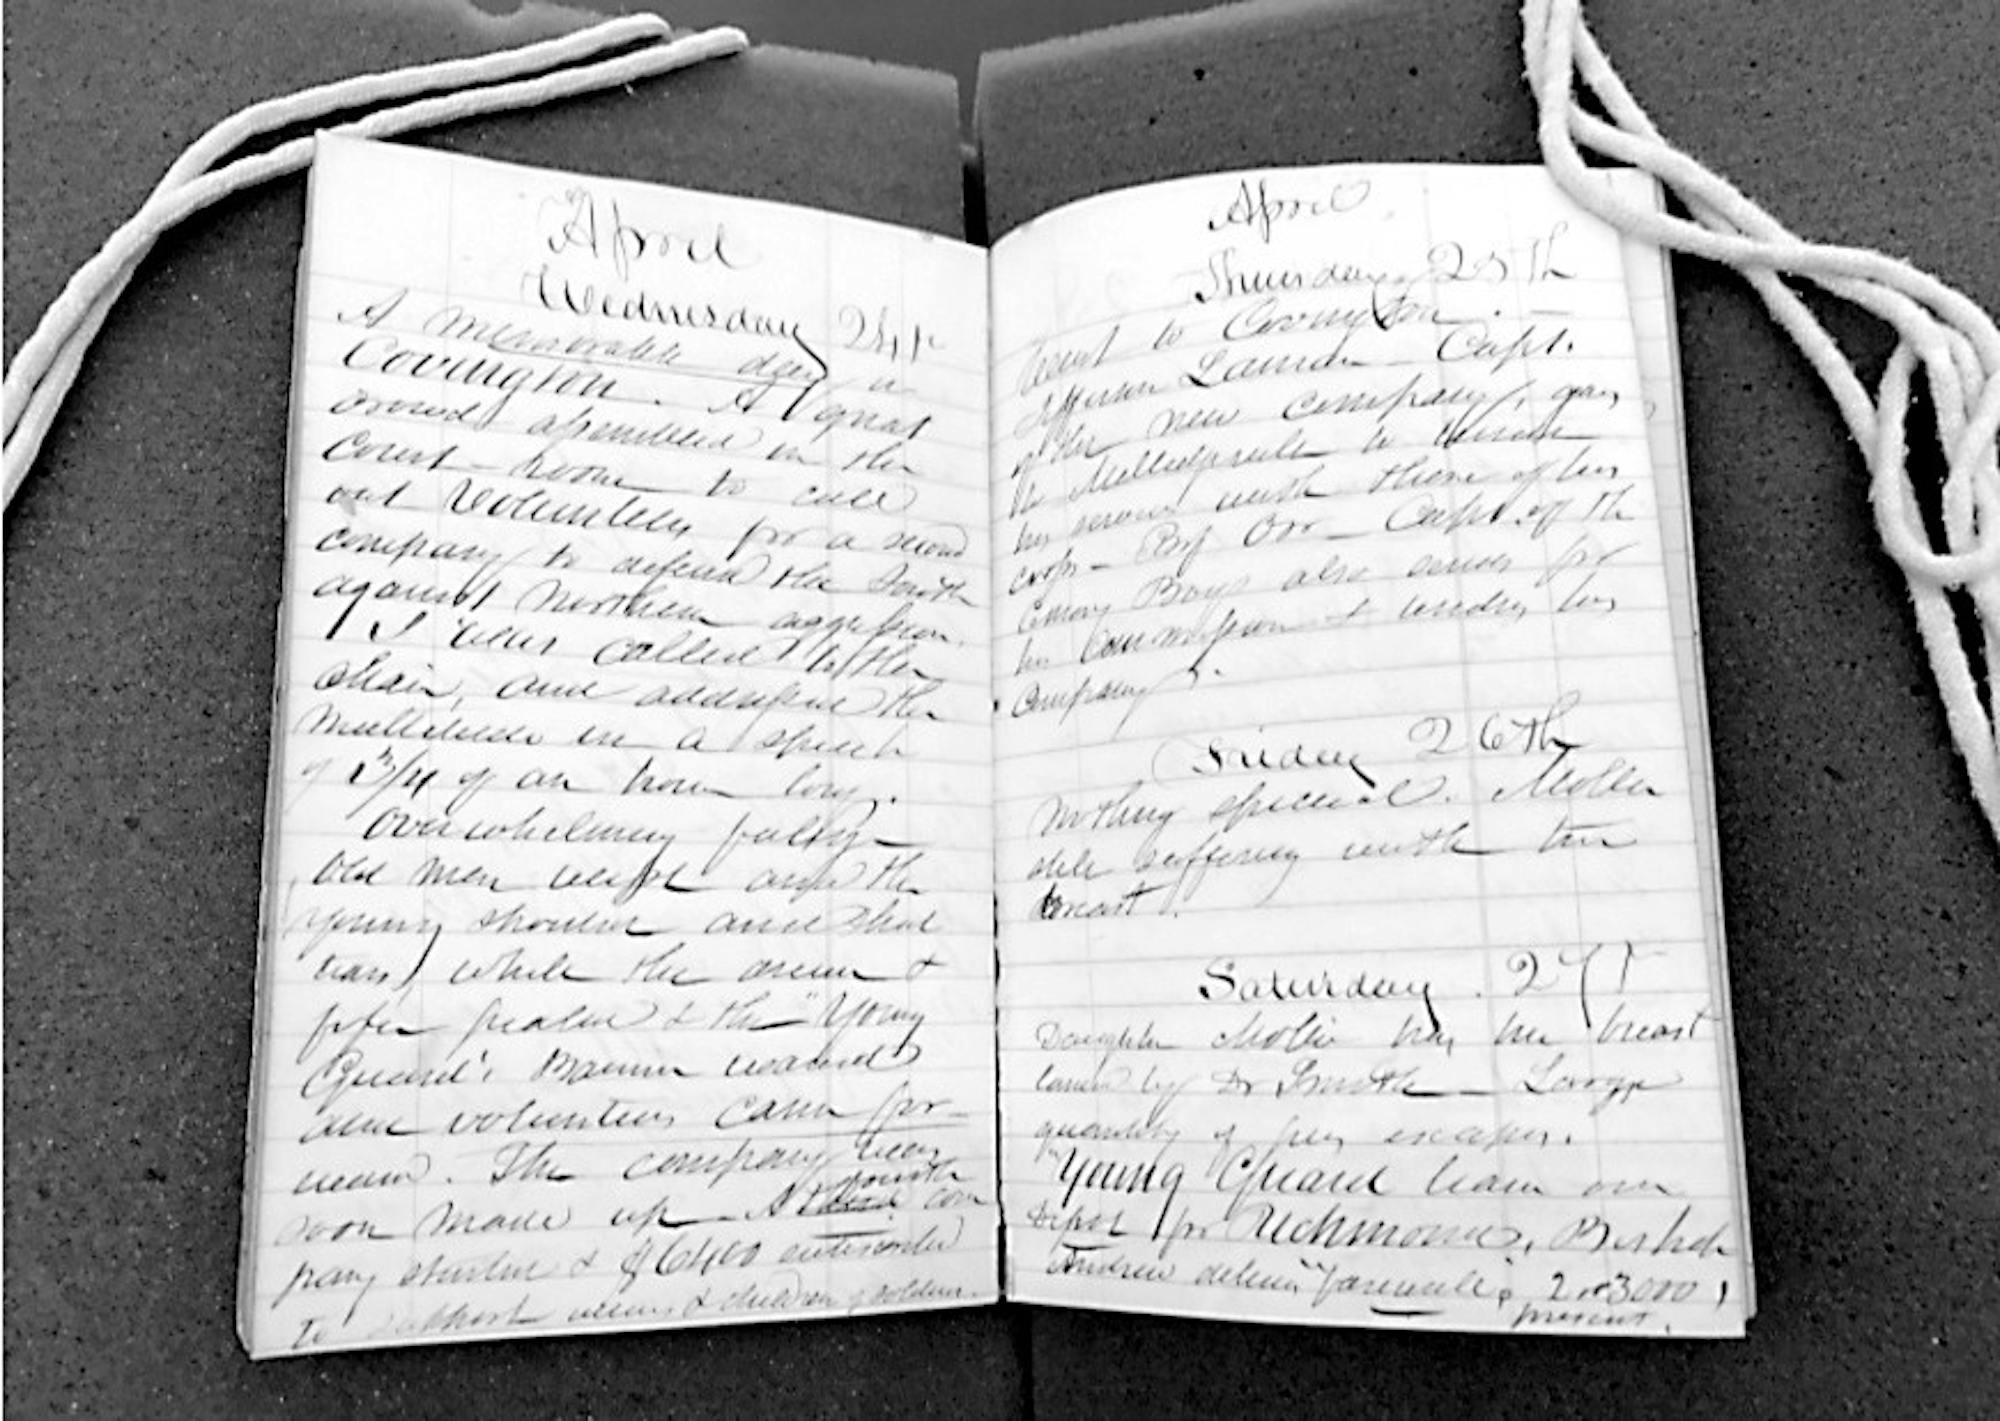 April
Wednesday 24th
A memorable day in
Covington. A great
crowd assembled in the
Court-house to call
out Volunteers for a second
company to defend the South
against Northern aggression.
I was called to the
chair, and addressed the
multitude in a speech
of 3/4 of an hour long.
Overwhelming feeling-
Old men wept and the
young shouted and shed
tears, while the drum &
fife pealed & the "Young
Guard's Banner waved
and volunteers came for-
ward. The company was
soon made up. A fourth com
pany started & $6400 subscribed
to support wives & children of soldiers.
April
Thursday 25th
Went to Covington. —
Jefferson Lamar — Capt.
of the new company, goes
to Milledgeville to tender
his services with those of his
corps — Prof Orr — Capt. of the
Emory Boys also sends for
his Commission & tenders his
Company.
Friday 26th
Nothing special. Mollie
still suffering with her
breast.
Saturday. 27th
Daughter Mollie has her breast
lanced by Dr Smith — Large
quantity of pus escapes.
"Young Guard leave our
Depot for Richmond. Bishop
Andrew delivers "farewell; 2 or 3000
present.